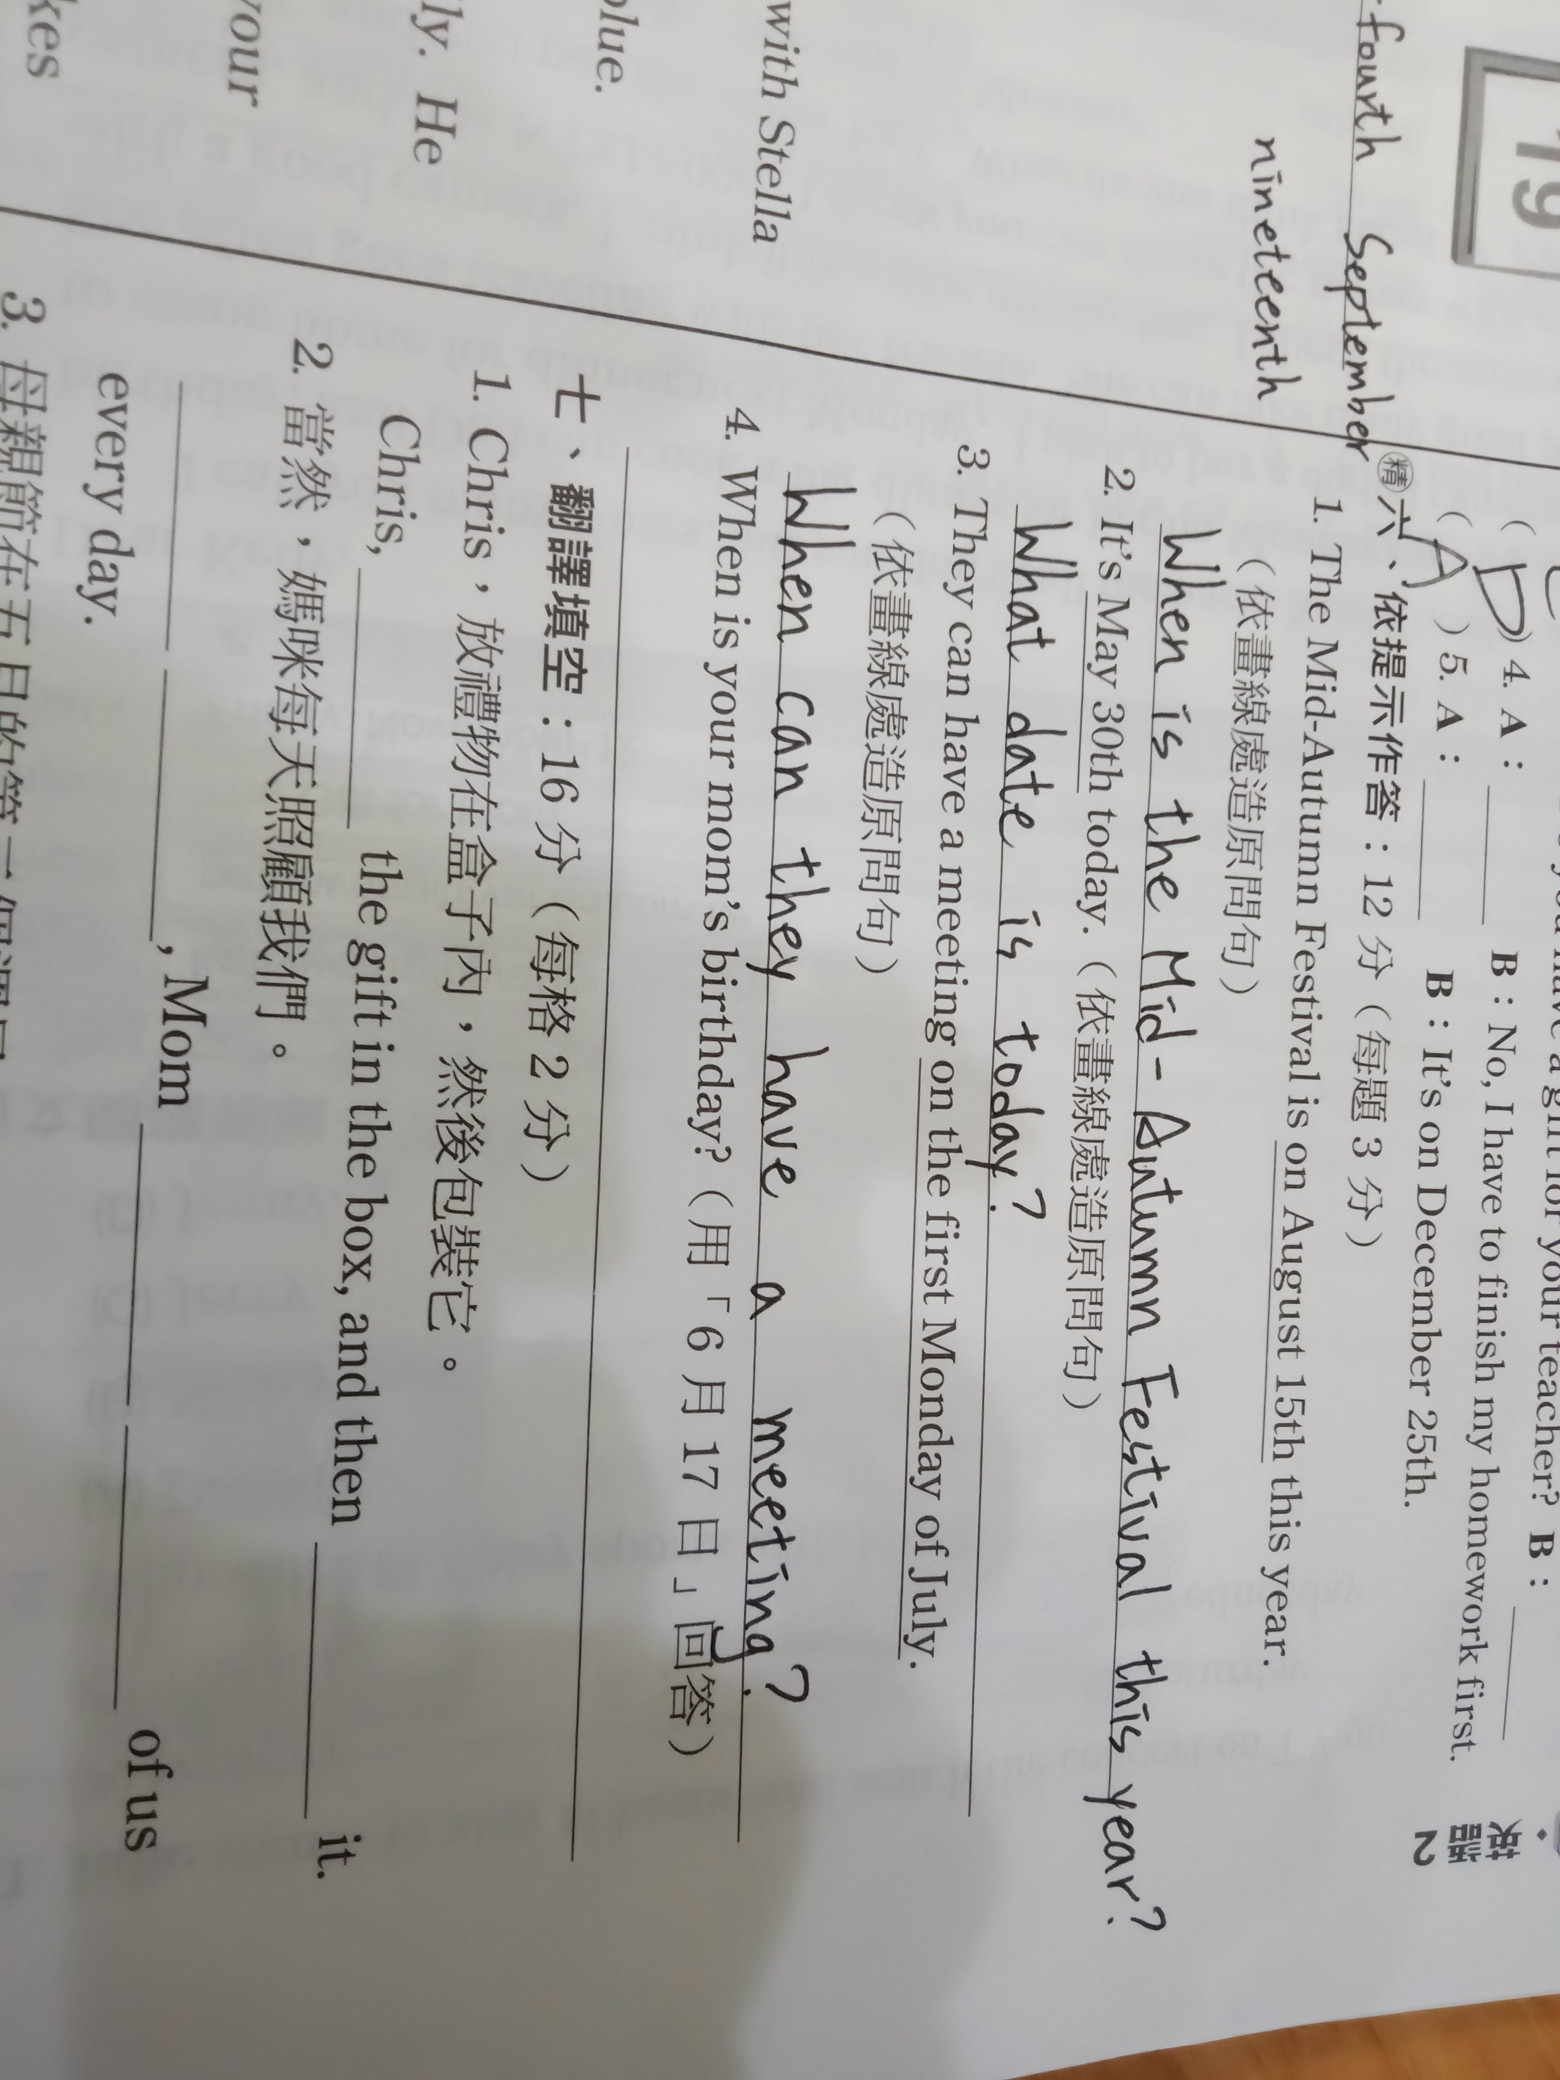 19
fourth September
nineteenth
with Stella
olue.
ly. He
your
kes
your teacher? B：
(D) 4. A： B：No, I have to finish my homework first.
(A) 5. A： B：It's on December 25th.
英語2
精 六、依提示作答：12 分（每題 3 分）
1. The Mid-Autumn Festival is on August 15th this year.
（依畫線處造原問句）
When is the Mid-Autumn Festival this year?
2. It's May 30th today.（依畫線處造原問句）
What date is today?
3. They can have a meeting on the first Monday of July.
（依畫線處造原問句）
When can they have a meeting?
4. When is your mom's birthday?（用「6 月 17 日」回答）
七、翻譯填空：16 分（每格 2 分）
1. Chris，放禮物在盒子內，然後包裝它。
Chris, the gift in the box, and then it.
2. 當然，媽咪每天照顧我們。
, Mom of us
every day.
3. 母親節在五月的第二個週日